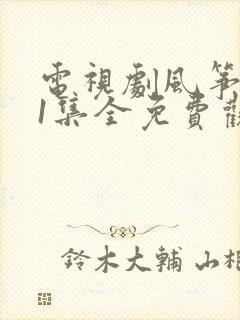 電視劇風箏
1集全免費
鈴木大輔 山